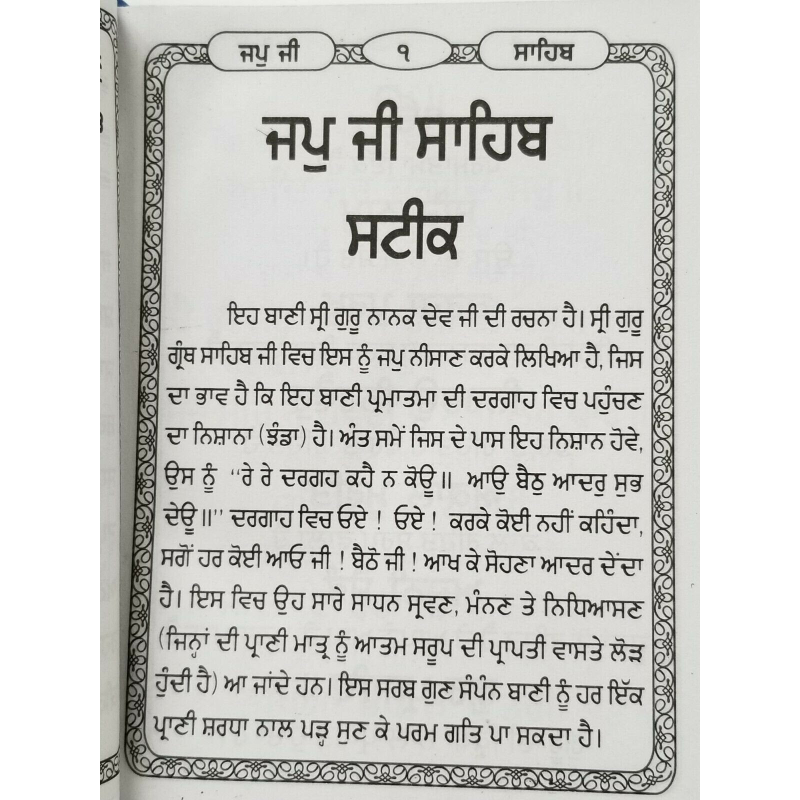 ਜਪੁ ਜੀ ੧ ਸਾਹਿਬ
ਜਪੁ ਜੀ ਸਾਹਿਬ
ਸਟੀਕ
ਇਹ ਬਾਣੀ ਸ੍ਰੀ ਗੁਰੂ ਨਾਨਕ ਦੇਵ ਜੀ ਦੀ ਰਚਨਾ ਹੈ। ਸ੍ਰੀ ਗੁਰੂ
ਗ੍ਰੰਥ ਸਾਹਿਬ ਜੀ ਵਿਚ ਇਸ ਨੂੰ ਜਪੁ ਨੀਸਾਣ ਕਰਕੇ ਲਿਖਿਆ ਹੈ, ਜਿਸ
ਦਾ ਭਾਵ ਹੈ ਕਿ ਇਹ ਬਾਣੀ ਪ੍ਰਮਾਤਮਾ ਦੀ ਦਰਗਾਹ ਵਿਚ ਪਹੁੰਚਣ
ਦਾ ਨਿਸ਼ਾਨਾ (ਝੰਡਾ) ਹੈ। ਅੰਤ ਸਮੇਂ ਜਿਸ ਦੇ ਪਾਸ ਇਹ ਨਿਸ਼ਾਨ ਹੋਵੇ,
ਉਸ ਨੂੰ “ਰੇ ਰੇ ਦਰਗਹ ਕਹੈ ਨ ਕੋਊ॥ ਆਉ ਬੈਠੁ ਆਦਰੁ ਸੁਭ
ਦੇਊ॥” ਦਰਗਾਹ ਵਿਚ ਓਏ ! ਓਏ ! ਕਰਕੇ ਕੋਈ ਨਹੀਂ ਕਹਿੰਦਾ,
ਸਗੋਂ ਹਰ ਕੋਈ ਆਓ ਜੀ ! ਬੈਠੋ ਜੀ ! ਆਖ ਕੇ ਸੋਹਣਾ ਆਦਰ ਦੇਂਦਾ
ਹੈ। ਇਸ ਵਿਚ ਉਹ ਸਾਰੇ ਸਾਧਨ ਸ੍ਰਵਣ, ਮੰਨਣ ਤੇ ਨਿਧਿਆਸਣ
(ਜਿਨ੍ਹਾਂ ਦੀ ਪ੍ਰਾਣੀ ਮਾਤ੍ਰ ਨੂੰ ਆਤਮ ਸਰੂਪ ਦੀ ਪ੍ਰਾਪਤੀ ਵਾਸਤੇ ਲੋੜ
ਹੁੰਦੀ ਹੈ) ਆ ਜਾਂਦੇ ਹਨ। ਇਸ ਸਰਬ ਗੁਣ ਸੰਪੰਨ ਬਾਣੀ ਨੂੰ ਹਰ ਇੱਕ
ਪ੍ਰਾਣੀ ਸ਼ਰਧਾ ਨਾਲ ਪੜ੍ਹ ਸੁਣ ਕੇ ਪਰਮ ਗਤਿ ਪਾ ਸਕਦਾ ਹੈ।